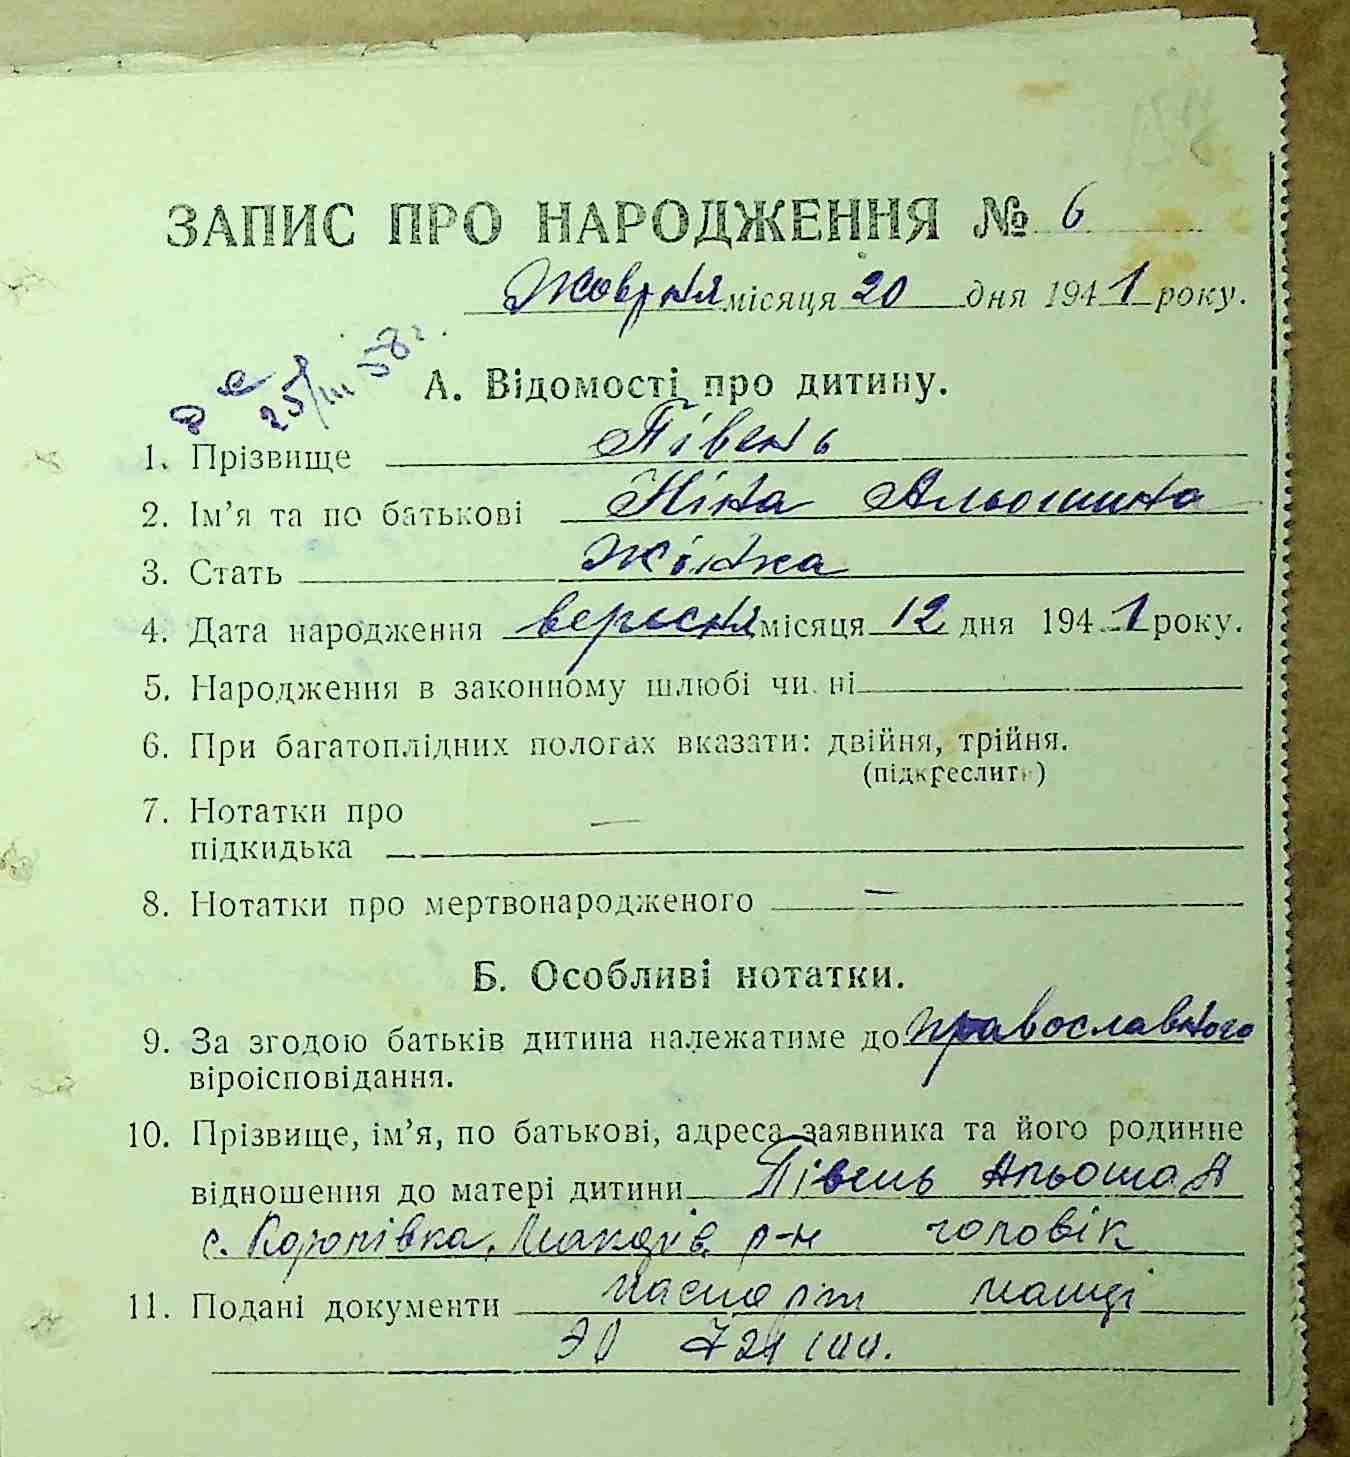 ЗАПИС ПРО НАРОДЖЕННЯ № 6
Жовтня місяця 20 дня 1941 року.
25/III 58 г.
А. Відомості про дитину.
1. Прізвище Півень
2. Ім'я та по батькові Ніна Альошина
3. Стать Жінка
4. Дата народження вересня місяця 12 дня 1941 року.
5. Народження в законному шлюбі чи ні
6. При багатоплідних пологах вказати: двійня, трійня.
(підкреслити)
7. Нотатки про
підкидька —
8. Нотатки про мертвонародженого —
Б. Особливі нотатки.
9. За згодою батьків дитина належатиме до православного
віроісповідання.
10. Прізвище, ім'я, по батькові, адреса заявника та його родинне
відношення до матері дитини Півень Альоша
с. р-н чоловік
11. Подані документи паспорт